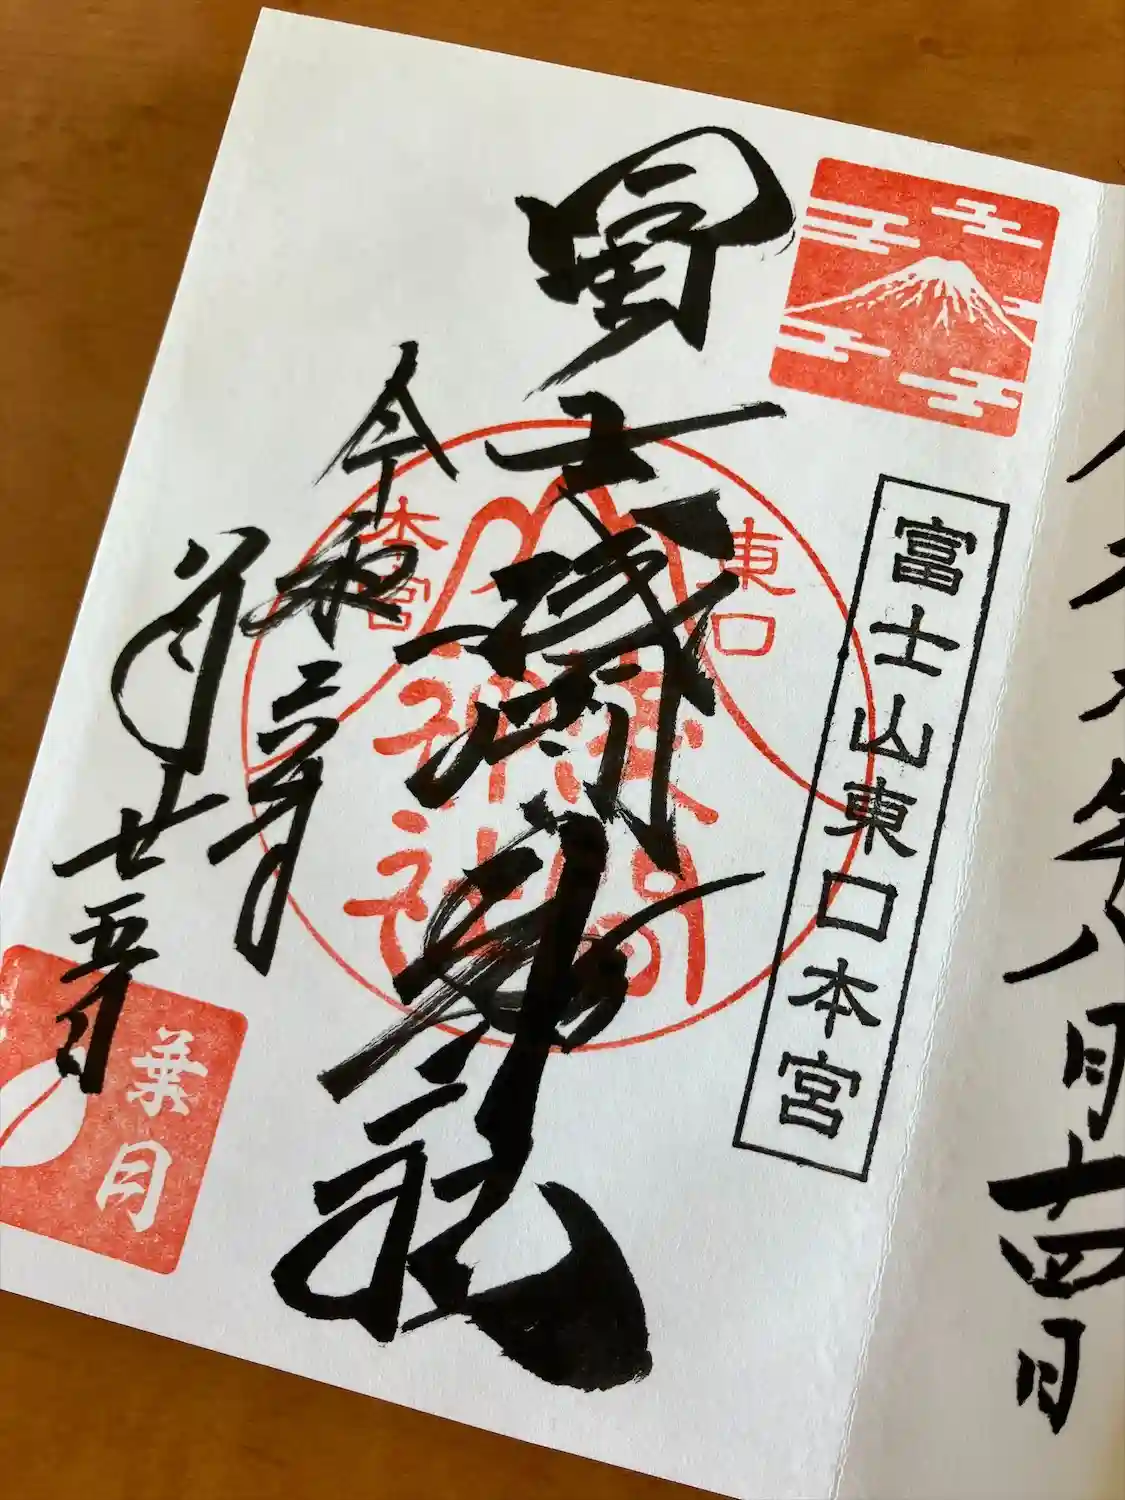 年八月十四日
富士山東口本宮
冨士浅間神社
東口
本宮
浅間
神社
令和
八月廿五日
葉月